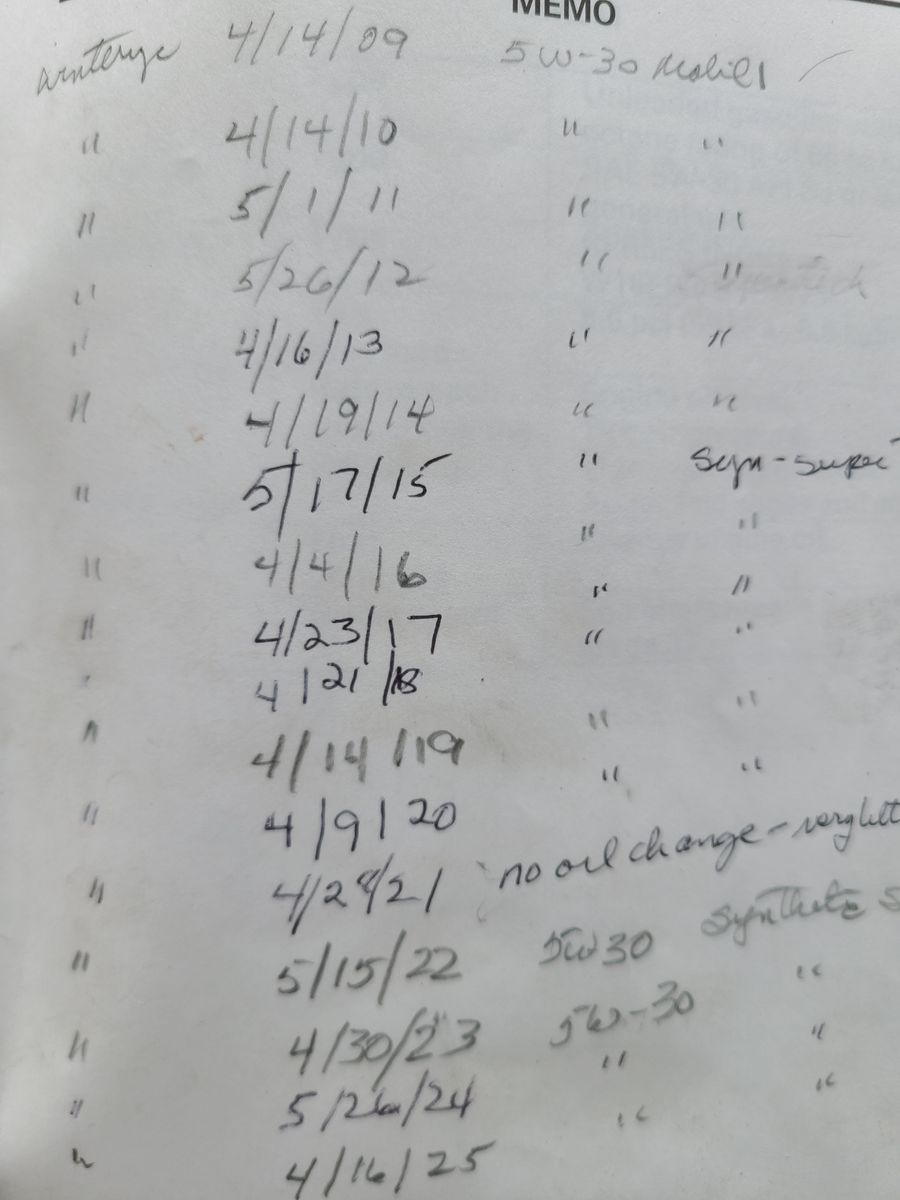 MEMO
winterize 4/14/09 5W-30 Mobil 1
" 4/14/10 " "
" 5/1/11 " "
" 5/26/12 " "
" 4/16/13 " "
" 4/19/14 " "
" 5/17/15 " Syn-super
" 4/4/16 " "
" 4/23/17 " "
" 4/21/18 " "
" 4/14/19 " "
" 4/9/20 " "
" 4/28/21 no oil change -
" 5/15/22 5W30 Synthetic S
" 4/30/23 5W-30 "
" 5/26/24 " "
" 4/16/25 " "